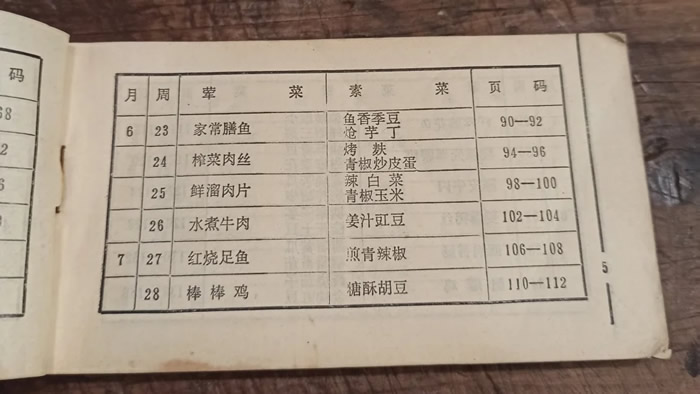 码
68
2
6
月 周 荤 菜 素 菜 页 码
6 23 家常膳鱼 鱼香季豆 90—92
炝芋丁
24 榨菜肉丝 烤麸 94—96
青椒炒皮蛋
25 鲜溜肉片 辣白菜 98—100
青椒玉米
26 水煮牛肉 姜汁豇豆 102—104
7 27 红烧足鱼 煎青辣椒 106—108
28 棒棒鸡 糖酥胡豆 110—112
5